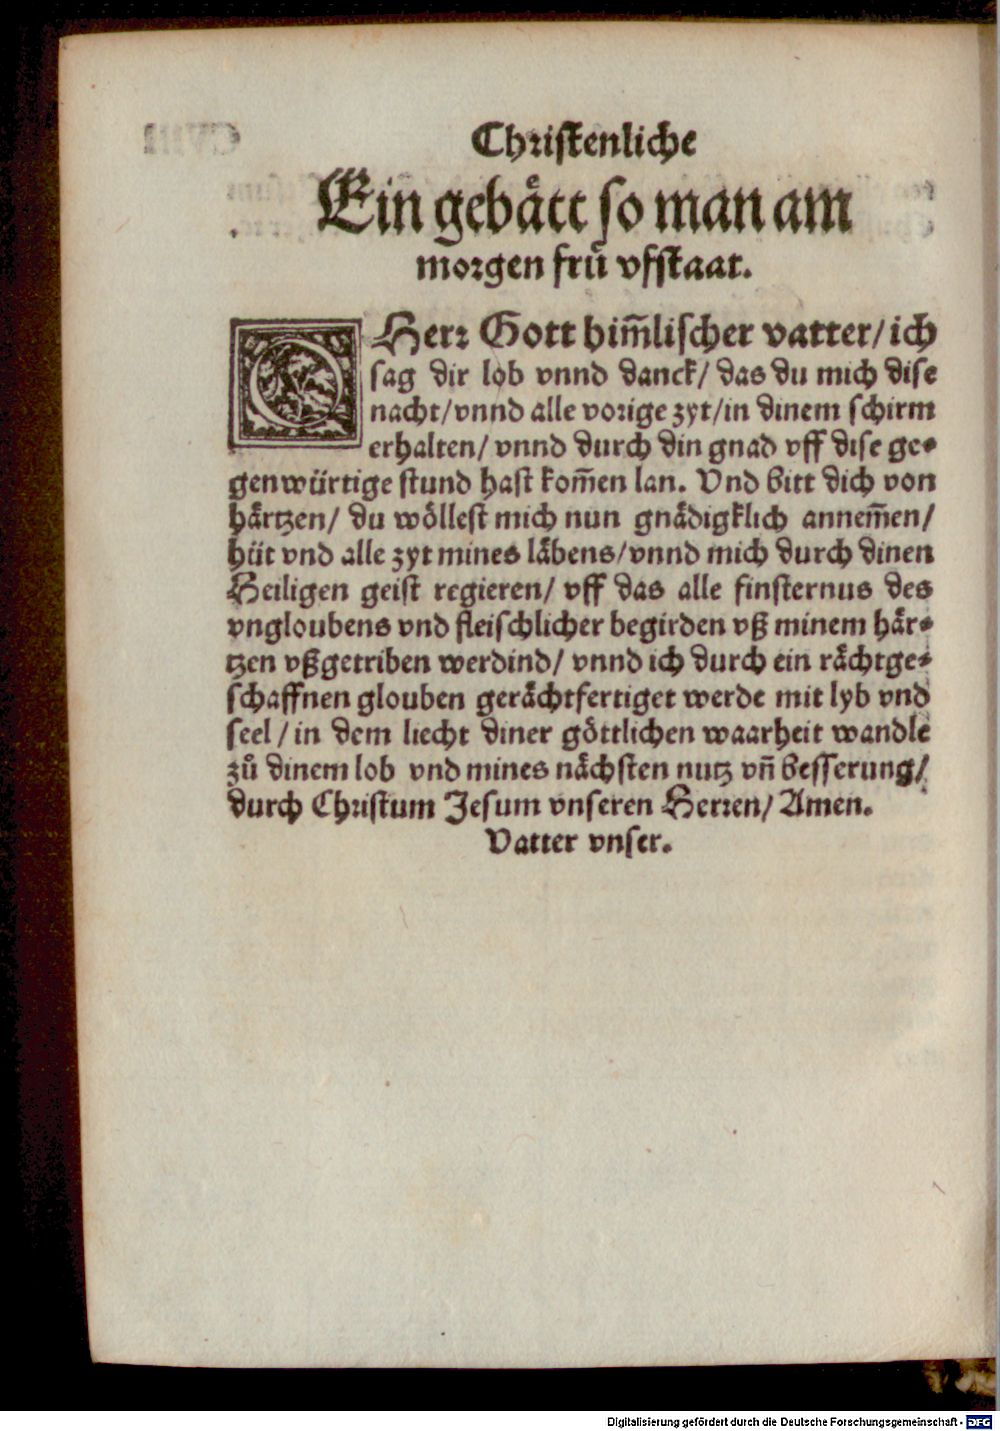 Christenliche
Ein gebaͤtt so man am
morgen fruͤ vfstaat.
O Herr Gott him̃lischer vatter/ ich
sag dir lob vnnd danck/ das du mich dise
nacht/vnnd alle vorige zyt/in dinem schirm
erhalten/ vnnd durch din gnad vff dise ge-
genwuͤrtige stund hast kom̃en lan. Vnd bitt dich von
haͤrtzen/ du woͤllest mich nun gnaͤdigklich annem̃en/
huͤt vnd alle zyt mines laͤbens/vnnd mich durch dinen
Heiligen geist regieren/ vff das alle finsternus des
vngloubens vnd fleischlicher begirden vß minem haͤr-
tzen vßgetriben werdind/ vnnd ich durch ein raͤchtge-
schaffnen glouben geraͤchtfertiget werde mit lyb vnd
seel/in dem liecht diner goͤttlichen waarheit wandle
zuͦ dinem lob vnd mines naͤchsten nutz vñ besserung/
durch Christum Jesum vnseren Herren/ Amen.
Vatter vnser.
Digitalisierung gefördert durch die Deutsche Forschungsgemeinschaft - DFG